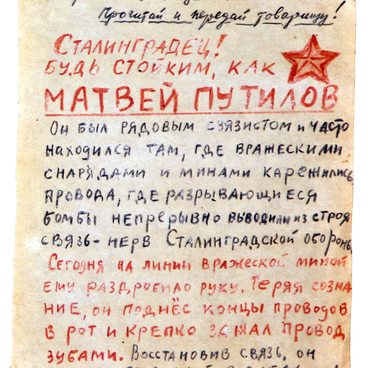 Прочитай и передай товарищу!
СТАЛИНГРАДЕЦ!
БУДЬ СТОЙКИМ, КАК
МАТВЕЙ ПУТИЛОВ
Он был рядовым связистом и часто
находился там, где вражескими
снарядами и минами карежились
провода, где разрывающиеся
бомбы непрерывно выводили из строя
связь-нерв Сталинградской обороны.
Сегодня на линии вражеской миной
ему раздробило руку. Теряя созна
ние, он поднёс концы проводов
в рот и крепко зажал провод
зубами. Восстановив связь, он